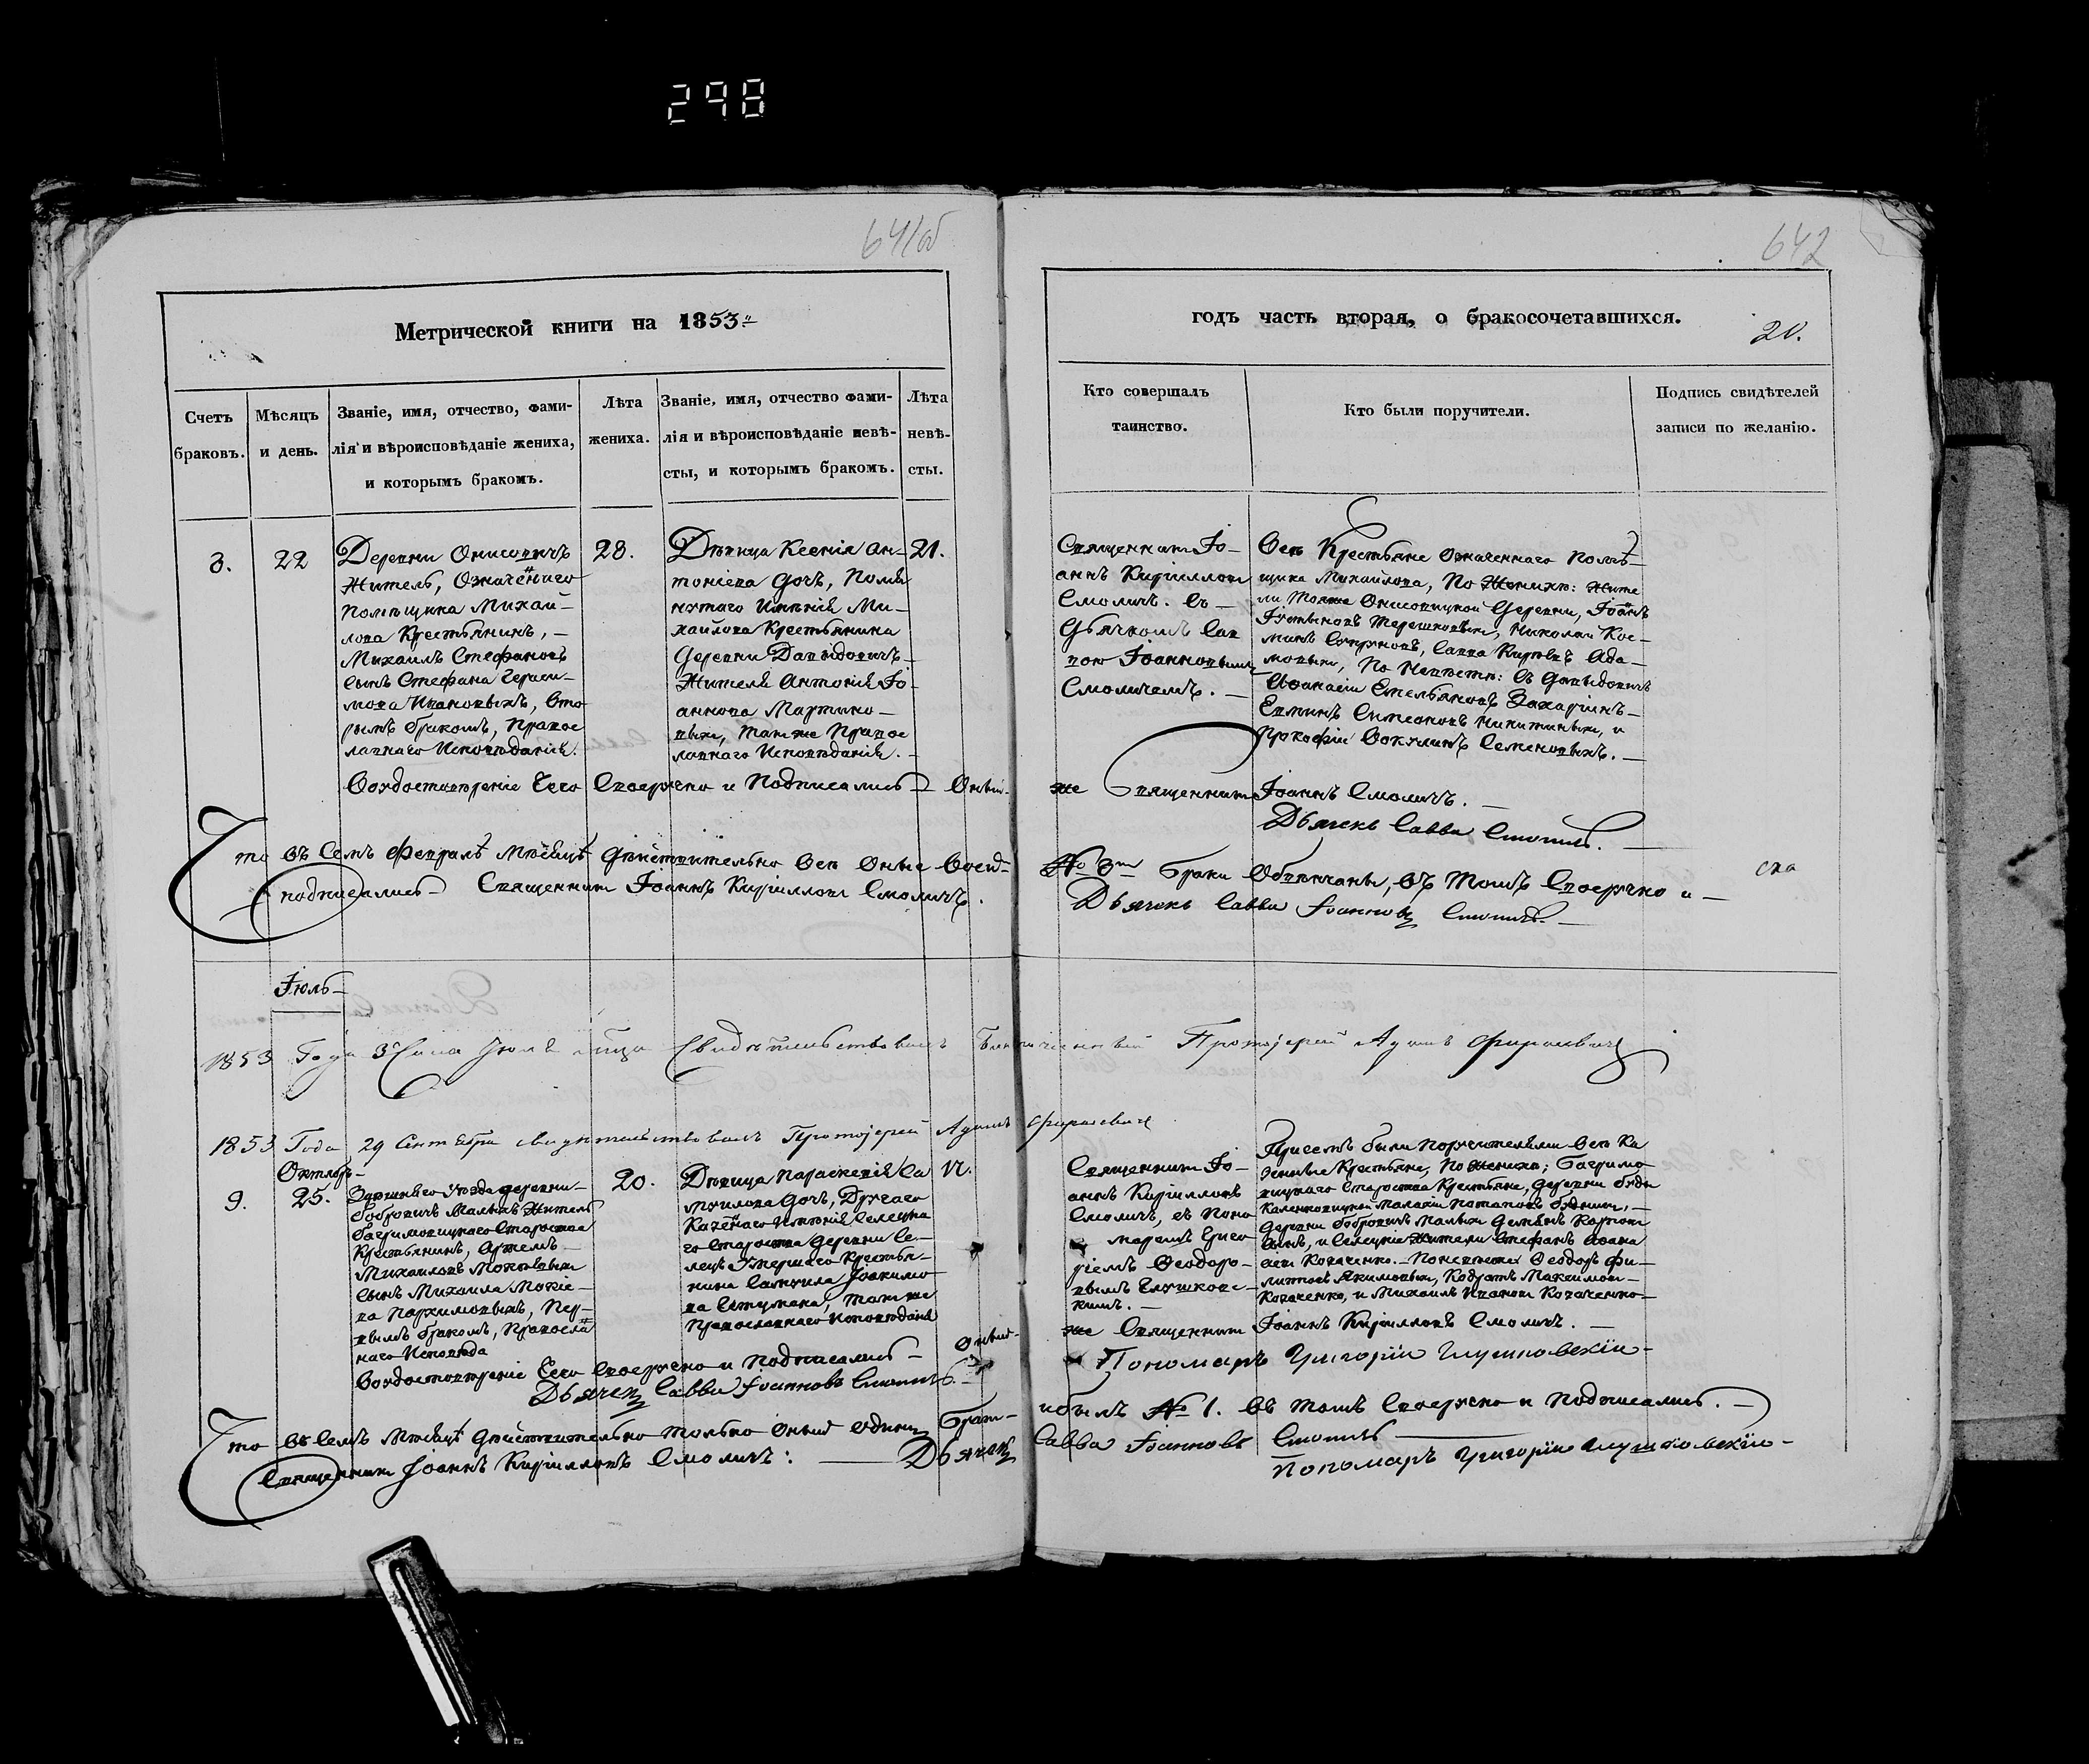 298
641об
642
Метрической книги на 1853
годъ часть вторая, о бракосочетавшихся.
20.
Счетъ браковъ.
Мѣсяцъ и день.
Званіе, имя, отчество, фами-
лія и вѣроисповѣданіе жениха,
и которымъ бракомъ.
Лѣта
жениха.
Званіе, имя, отчество фами-
лія и вѣроисповѣданіе невѣ-
сты, и которымъ бракомъ.
Лѣта
невѣ-
сты.
Кто совершалъ
таинство.
Кто были поручители.
Подпись свидѣтелей
записи по желанію.
3.
22
Деревни Онисовичъ
Житель, Означеннаго
Помѣщика Михай-
лова Крестьянинъ, —
Михаилъ Стефановъ
сынъ Стефана Гераси-
мова Ивановыхъ, вто
рымъ бракомъ, Правос
лавнаго Исповѣданія.
28.
Дѣвица Ксенія Ан-
тоніева дочь, Помя
нутаго Имѣнія Ми-
хайлова Крестьянина
деревни Давидовичъ
Жителя Антонія Іо-
аннова Мартино-
выхъ, также Правос
лавнаго Исповѣданія. —
21.
Священникъ Іо-
аннъ Кирилловъ
Смоличъ. Съ —
Дьячкомъ Сав
вою Іоанновымъ
Смоличемъ. —
Всѣ Крестьяне Означеннаго Помѣ-
щика Михайлова, По Женихѣ: Жите
ли тояже Онисовицкой Деревни, Іоаннъ
Терешковыхъ, Николай Кос-
минъ Савва Ада-
мовыхъ, По Невѣстѣ: въ Давыдовичъ
Афанасій Емельяновъ Захаринъ —
Симеоновъ Никитиныхъ, и
Прокофій Семеновыхъ. —
Воудостовѣреніе Сего Своеручно и Подписались — Оный-
же Священникъ Іоаннъ Смоличъ. —
Дьячекъ Савва Смоличъ. —
Что въ Семъ Февралѣ Мѣсяцѣ дѣйствительно всѣ оные
№ 3 Браки Обвѣнчаны, въ томъ Своеручно и —
подписались — Священникъ Іоаннъ Кирилловъ Смоличъ.
Дьячекъ Савва Іоанновъ Смоличъ. —
Іюль —
1853 Года 3 Числа Іюля мѣца Свидѣтельствовалъ Благочинный Протоіерей Адамъ
1853 Года 29 Сентября свидѣтельствовалъ Протоіерей Адамъ
Октябрь —
9.
25.
уѣзда деревни —
Бобровичъ Малыхъ Житель
Староства
Крестьянинъ, Артемъ —
Михаиловъ
сынъ Михаила Мокіе-
ва Пархимовыхъ, Пер-
вымъ бракомъ, Правосла
наго Исповѣда
20.
Дѣвица Параскевія Са
муилова дочь, Другаго
Казеннаго Имѣнія Селецка
го Староства деревни Се-
лецъ Умершаго Крестья-
нина Самуила Іоакимо
ва также
Православнаго Исповѣданія
Священникъ Іо-
аннъ Кирилловъ
Смоличъ, съ Поно
маремъ Григо
ріемъ Феодоро-
вымъ Глушковс-
кимъ. —
При семъ были Поручителями Всѣ Ка
зенные Крестьяне, По Женихѣ; Багримо-
вицкаго Староства Крестьяне, деревни Буды
Малахій Потаповъ —
деревни Бобровичъ Малыхъ Демьянъ Карпови
сынъ, и Селецкіе Жители Стефанъ Афана
сіевъ Козаченко. — По невѣстѣ Феодоръ Фи-
липповъ Якимовыхъ, Кодратъ Максимов-
Козаченко, и Михаилъ Ивановъ Козаченко —
Воудостовѣреніе Сего Своеручно и Подписались — Оный-
же Священникъ Іоаннъ Кирилловъ Смоличъ. —
Дьячекъ Савва Іоанновъ Смоличъ. —
Пономарь Григорій Глушковскій —
Что въ Семъ Мѣсяцѣ дѣйствительно только Оный Одинъ Брак-
№ 1. въ томъ Своеручно и Подписались. —
Священникъ Іоаннъ Кирилловъ Смоличъ: — Дьячекъ
Савва Іоанновъ Смоличъ —
Пономарь Григорій Глушковскій —